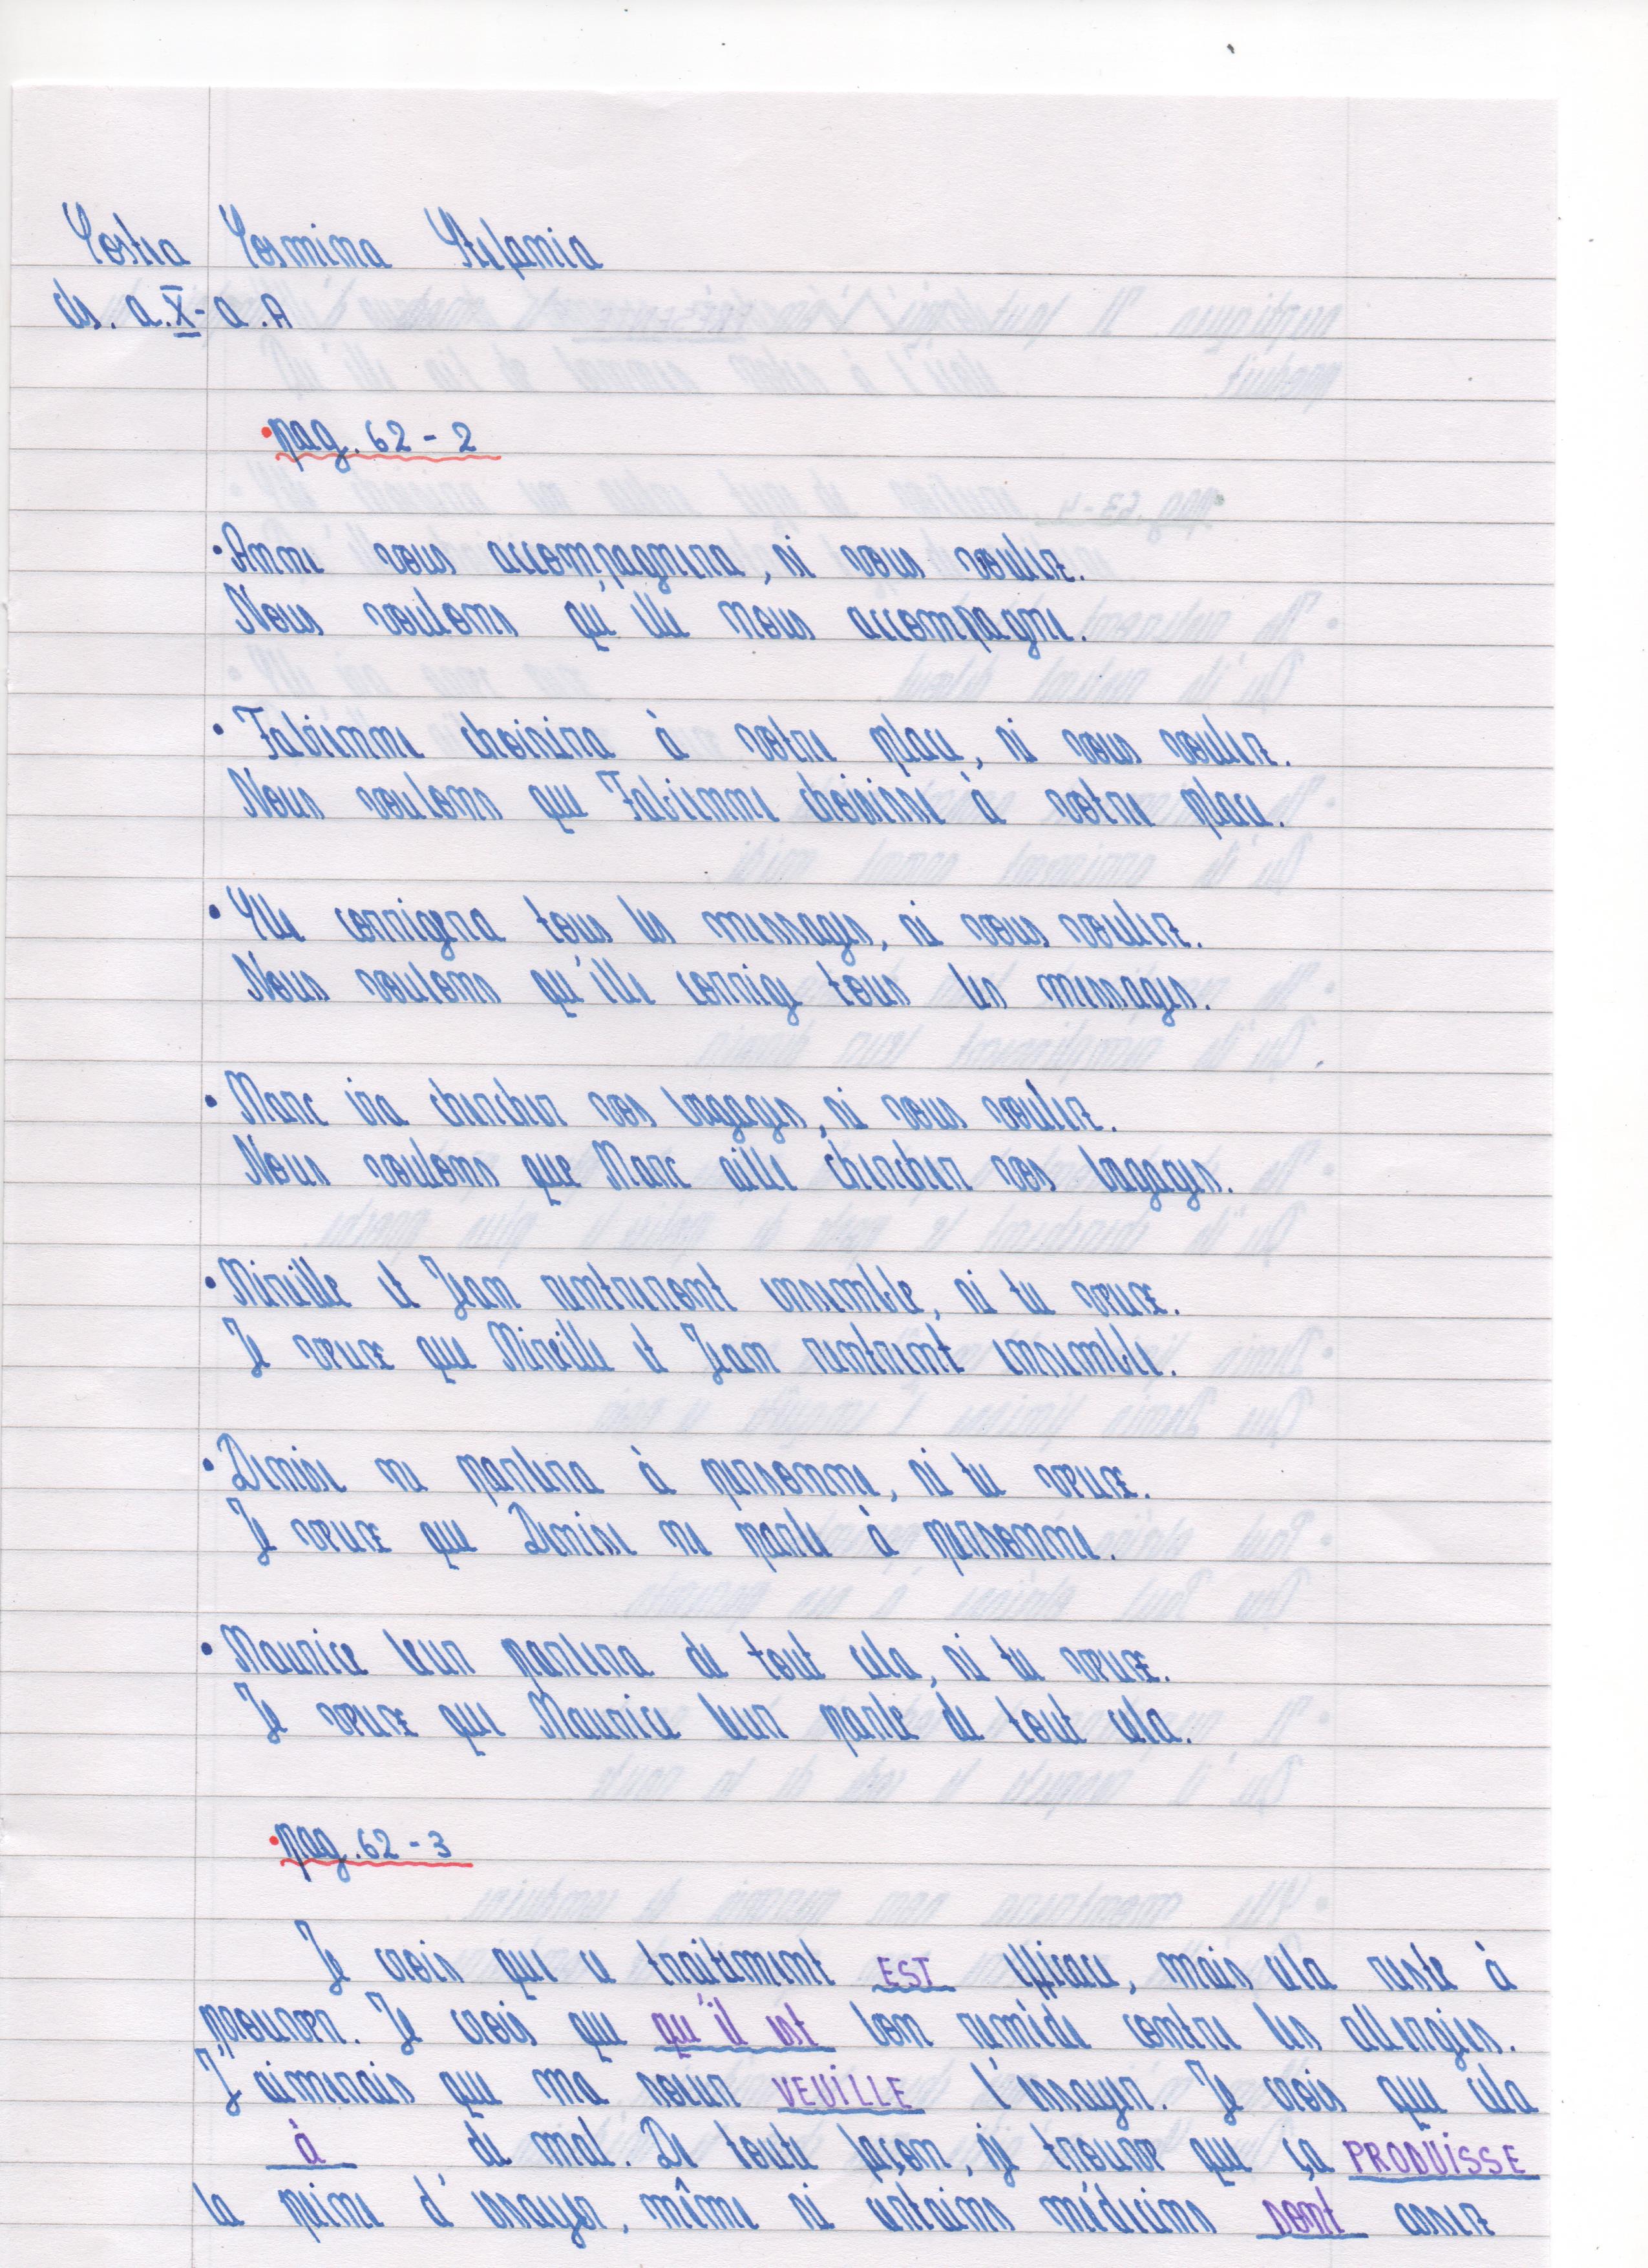 Costea Cosmina Stefania
cls. a.X-a.A
pag. 62 - 2
• Anne vous accompagnera, si vous voulez.
Nous voulons qu'elle nous accompagne.
• Fabienne choisira à votre place, si vous voulez.
Nous voulons que Fabienne choisisse à votre place.
• Elle corrigera tous les messages, si vous voulez.
Nous voulons qu'elle corrige tous les messages.
• Marc ira chercher vos bagages, si vous voulez.
Nous voulons que Marc aille chercher vos bagages.
• Mireille et Jean rentreront ensemble, si tu veux.
Je veux que Mireille et Jean rentrent ensemble.
• Denise ne parlera à personne, si tu veux.
Je veux que Denise ne parle à personne.
• Maurice leur parlera de tout cela, si tu veux.
Je veux que Maurice leur parle de tout cela.
pag. 62 - 3
Je crois que ce traitement EST efficace, mais cela reste à
prouver. Je crois que qu'il est bon remède contre les allergies.
J'aimerais que ma soeur VEUILLE l'essayer. Je crois que cela
à de mal. De toute façon, je trouve que ça PRODUISSE
la peine d'essayer, même si certains médecins sont assez